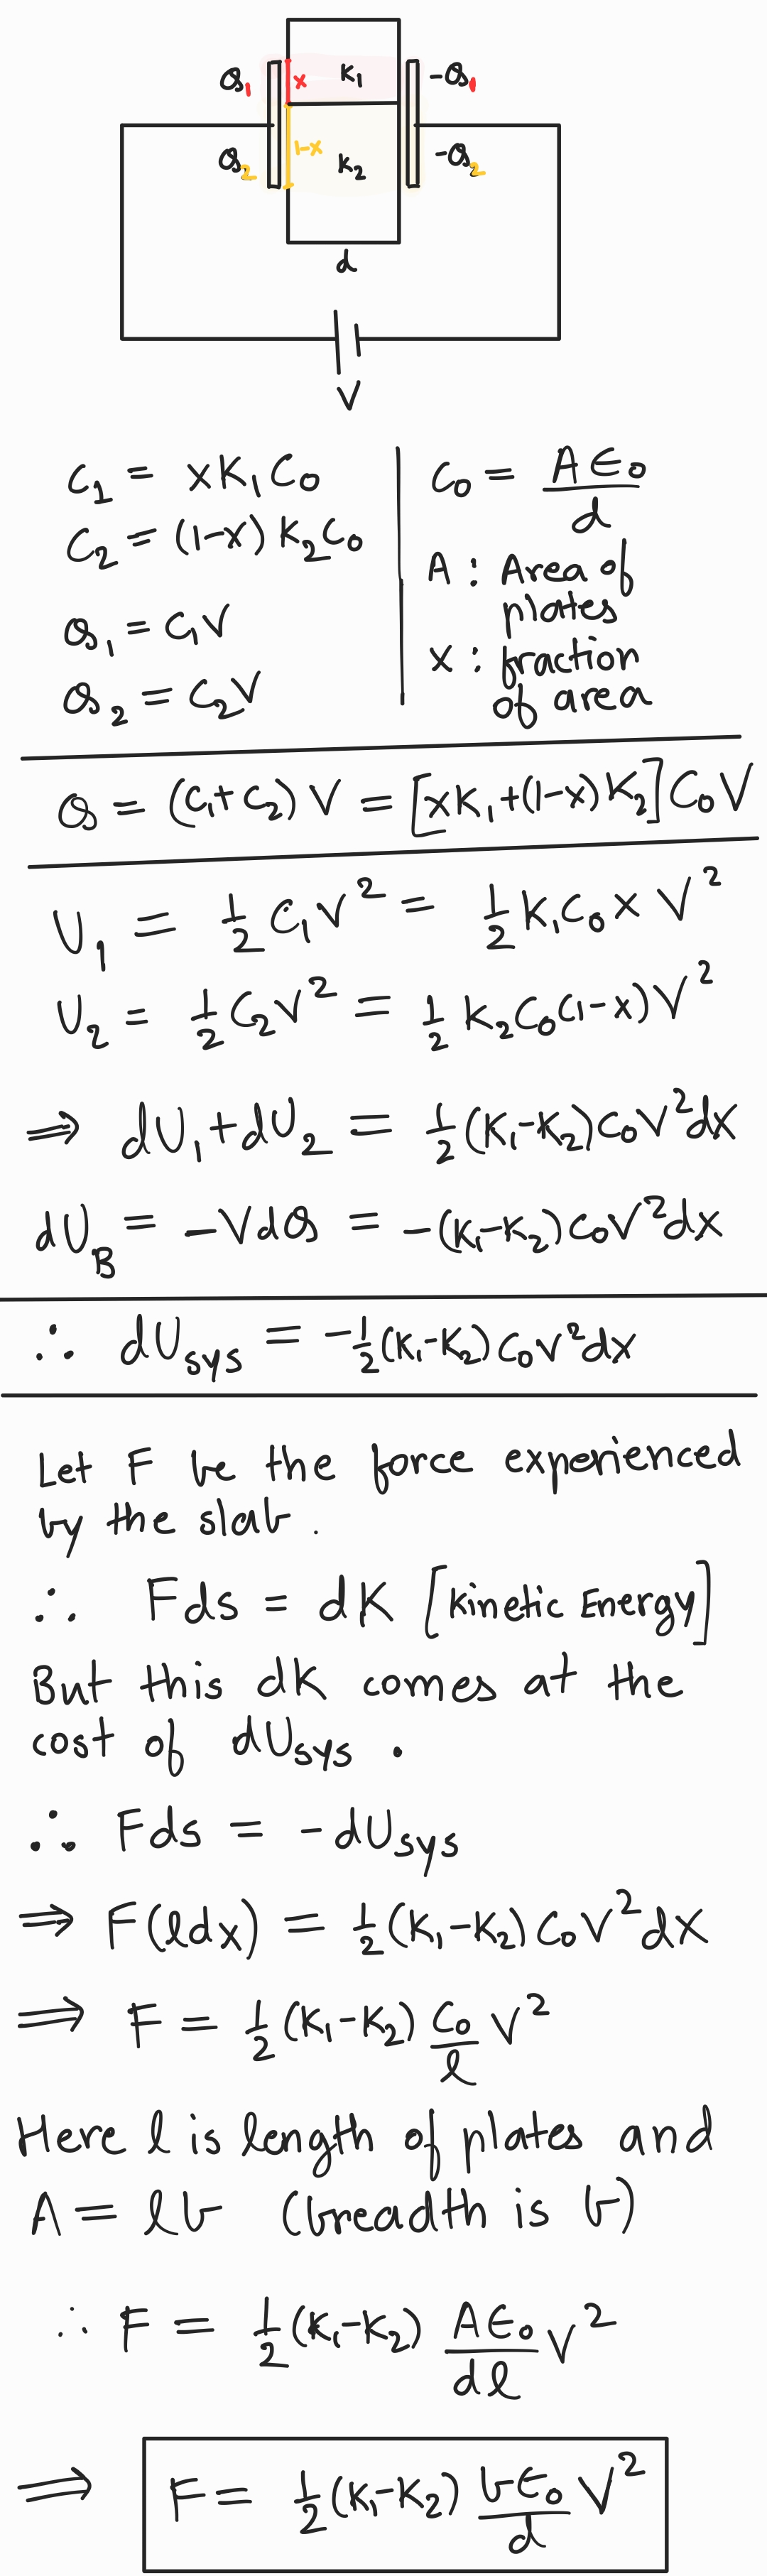 Q₁ x K₁ -Q₁
Q₂ 1-x K₂ -Q₂
d
V
C₁ = xK₁C₀
C₂ = (1-x)K₂C₀
Q₁ = C₁V
Q₂ = C₂V
C₀ = Aϵ₀/d
A : Area of
plates
x : fraction
of area
Q = (C₁+C₂)V = [xK₁+(1-x)K₂]C₀V
U₁ = 1/2 C₁V² = 1/2 K₁C₀xV²
U₂ = 1/2 C₂V² = 1/2 K₂C₀(1-x)V²
⇒ dU₁+dU₂ = 1/2(K₁-K₂)C₀V²dx
dU_B = -VdQ = -(K₁-K₂)C₀V²dx
∴ dU_sys = -1/2(K₁-K₂)C₀V²dx
Let F be the force experienced
by the slab.
∴ Fds = dK [Kinetic Energy]
But this dK comes at the
cost of dU_sys.
∴ Fds = -dU_sys
⇒ F(ldx) = 1/2(K₁-K₂)C₀V²dx
⇒ F = 1/2(K₁-K₂) C₀/l V²
Here l is length of plates and
A = lb (breadth is b)
∴ F = 1/2(K₁-K₂) Aϵ₀/dl V²
⇒ F = 1/2(K₁-K₂) bϵ₀/d V²